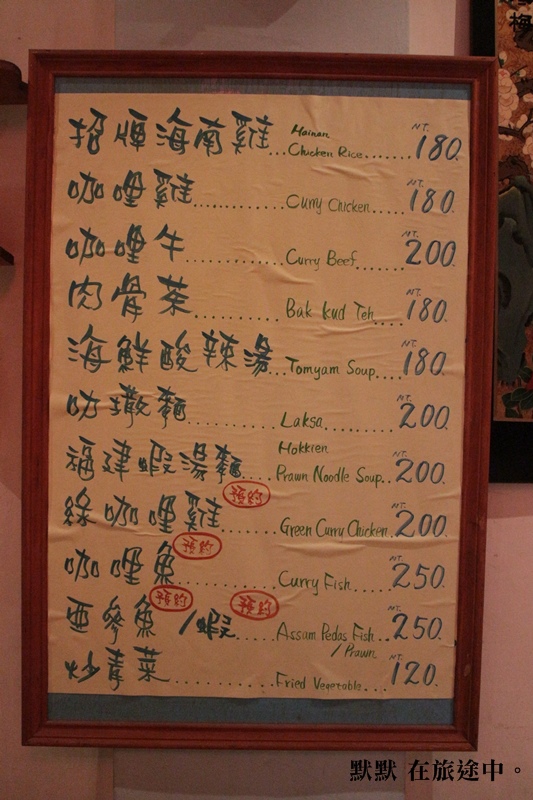 招牌海南雞...Hainan Chicken Rice......NT.180.
咖哩雞..........Curry Chicken.....NT.180.
咖哩牛...........Curry Beef.......NT.200.
肉骨茶..........Bak Kud Teh....NT.180.
海鮮酸辣湯...Tomyam Soup....NT.180.
叻撒麵..........Laksa........NT.200.
福建蝦湯麵....Hokkien Prawn Noodle Soup..NT.200.
綠咖哩雞 預約......Green Curry Chicken..NT.200.
咖哩魚 預約...........Curry Fish....NT.250.
亞參魚 預約/蝦 預約....Assam Pedas Fish/Prawn...NT.250.
炒青菜...........Fried Vegetable...NT.120.
默默 在旅途中。